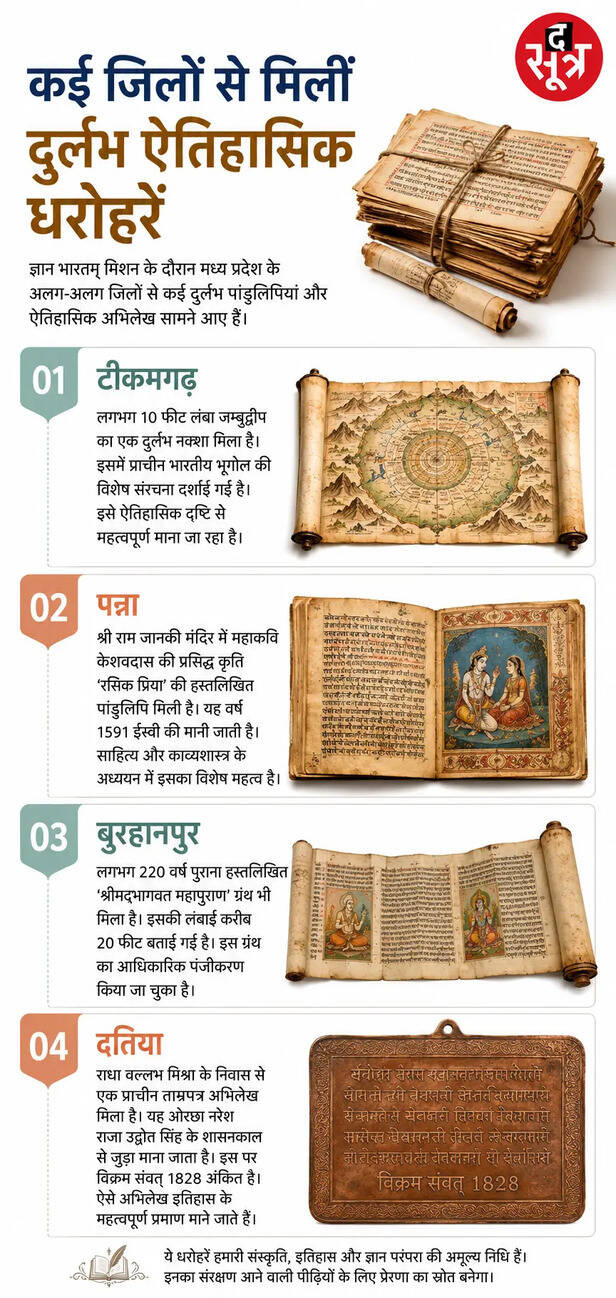 द
सूत्र
कई जिलों से मिलीं
दुर्लभ ऐतिहासिक
धरोहरें
ज्ञान भारतम् मिशन के दौरान मध्य प्रदेश के
अलग-अलग जिलों से कई दुर्लभ पांडुलिपियां और
ऐतिहासिक अभिलेख सामने आए हैं।
01
टीकमगढ़
लगभग 10 फीट लंबा जम्बुद्वीप
का एक दुर्लभ नक्शा मिला है।
इसमें प्राचीन भारतीय भूगोल की
विशेष संरचना दर्शाई गई है।
इसे ऐतिहासिक दृष्टि से
महत्वपूर्ण माना जा रहा है।
02
पन्ना
श्री राम जानकी मंदिर में महाकवि
केशवदास की प्रसिद्ध कृति
'रसिक प्रिया' की हस्तलिखित
पांडुलिपि मिली है। यह वर्ष
1591 ईस्वी की मानी जाती है।
साहित्य और काव्यशास्त्र के
अध्ययन में इसका विशेष महत्व है।
03
बुरहानपुर
लगभग 220 वर्ष पुराना हस्तलिखित
'श्रीमद्भागवत महापुराण' ग्रंथ भी
मिला है। इसकी लंबाई करीब
20 फीट बताई गई है। इस ग्रंथ
का आधिकारिक पंजीकरण
किया जा चुका है।
04
दतिया
राधा वल्लभ मिश्रा के निवास से
एक प्राचीन ताम्रपत्र अभिलेख
मिला है। यह ओरछा नरेश
राजा उद्वोत सिंह के शासनकाल
से जुड़ा माना जाता है। इस पर
विक्रम संवत् 1828 अंकित है।
ऐसे अभिलेख इतिहास के
महत्वपूर्ण प्रमाण माने जाते हैं।
विक्रम संवत् 1828
ये धरोहरें हमारी संस्कृति, इतिहास और ज्ञान परंपरा की अमूल्य निधि हैं।
इनका संरक्षण आने वाली पीढ़ियों के लिए प्रेरणा का स्रोत बनेगा।